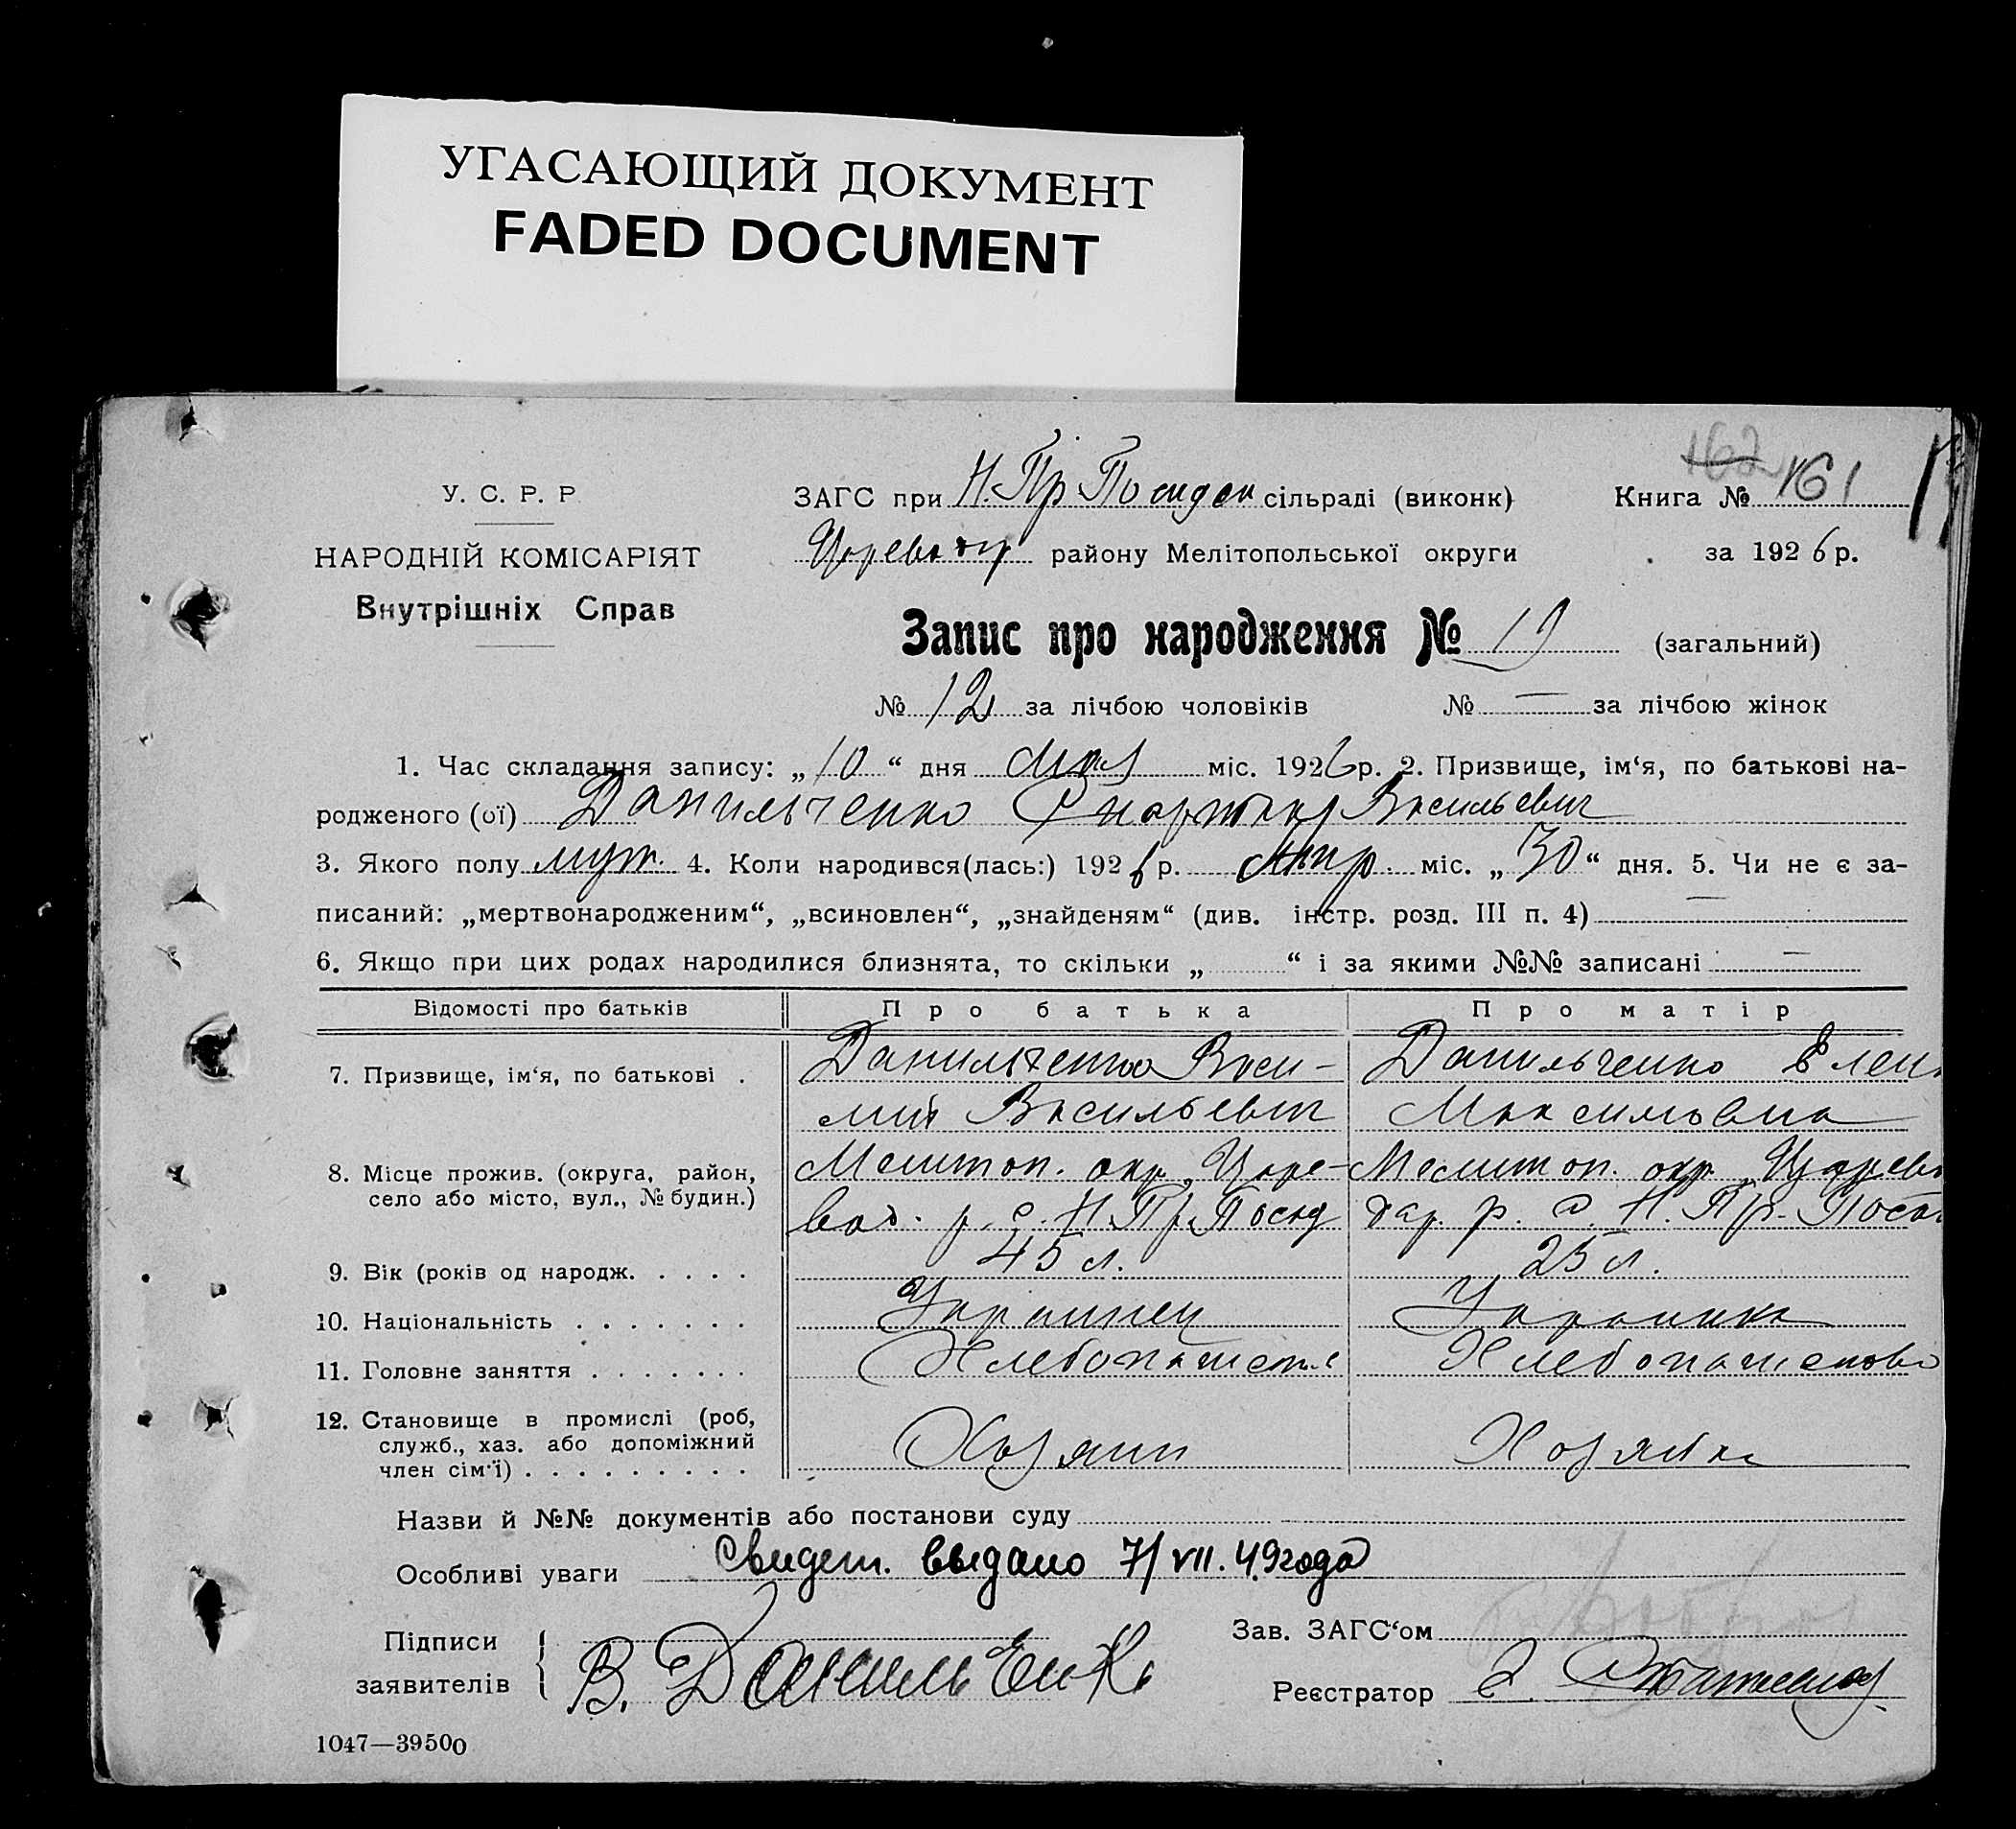 УГАСАЮЩИЙ ДОКУМЕНТ
FADED DOCUMENT
162 161
У. С. Р. Р
ЗАГС при Н. Пр Посидон сільраді (виконк) Книга №
НАРОДНІЙ КОМІСАРІЯТ
Царевод р районy Мелітопольської округи за 1926 р.
Внутрішніх Справ
Запис про народження № 19 (загальний)
№ 12 за лічбою чоловіків № — за лічбою жінок
1. Час складання запису: „10“ дня мая міс. 1926 р. 2. Призвище, ім‘я, по батькові на-
родженого (ої) Данильченко Васильевич
3. Якого полу муж. 4. Коли народився(лась:) 1926 р. Апр. міс. „30“ дня. 5. Чи не є за-
писаний: „мертвонародженим“, „всиновлен“, „знайденям“ (див. інстр. розд. III п. 4) —
6. Якщо при цих родах народилися близнята, то скільки „ “ і за якими №№ записані —
Відомості про батьків Про батька Про матір
7. Призвище, ім‘я, по батькові . Данильченко Васи- Данильченко Елен
лий Васильевич Максимовна
8. Місце прожив. (округа, район, Мелитоп. окр. Царе- Мелитоп. окр. Царево
село або місто, вул., № будин.) вод. р. с. Н. Пр. Посид дар. р. с. Н. Пр. Поси
9. Вік (років од народж. . . . . 45 л. 25 л.
10. Національність . . . . . . . Украинец Украинка
11. Головне заняття . . . . . . . Хлебопашест Хлебопашество
12. Становище в промислі (роб, Хозяин Хозяйка
служб., хаз. або допоміжний
член сім‘ї) . . . . . . . . .
Назви й №№ документів або постанови суду
Особливі уваги Свидет. выдано 7/VII. 49 года
Підписи
заявителів В. Данильченко
Зав. ЗАГС‘ом
Реєстратор
1047—39500